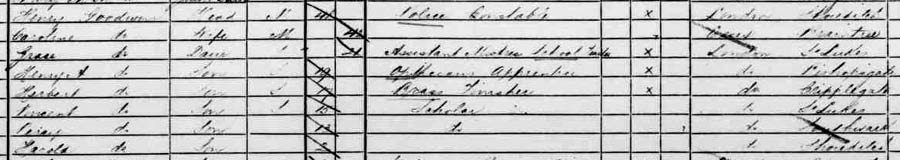 Henry Goodwin Head M 41 Police Constable x London Shoreditch
Caroline do Wife M Essex Braintree
Grace do Daur S 21 Assistant Mistress School x London St Lukes
Henry A do Son S 19 Apprentice x do Bishopsgate
Herbert do Son S Brass Finisher x do Cripplegate
Vincent do Son S Scholar do St Lukes
Percy do Son do do Southwark
Harold do Son do Shoreditch